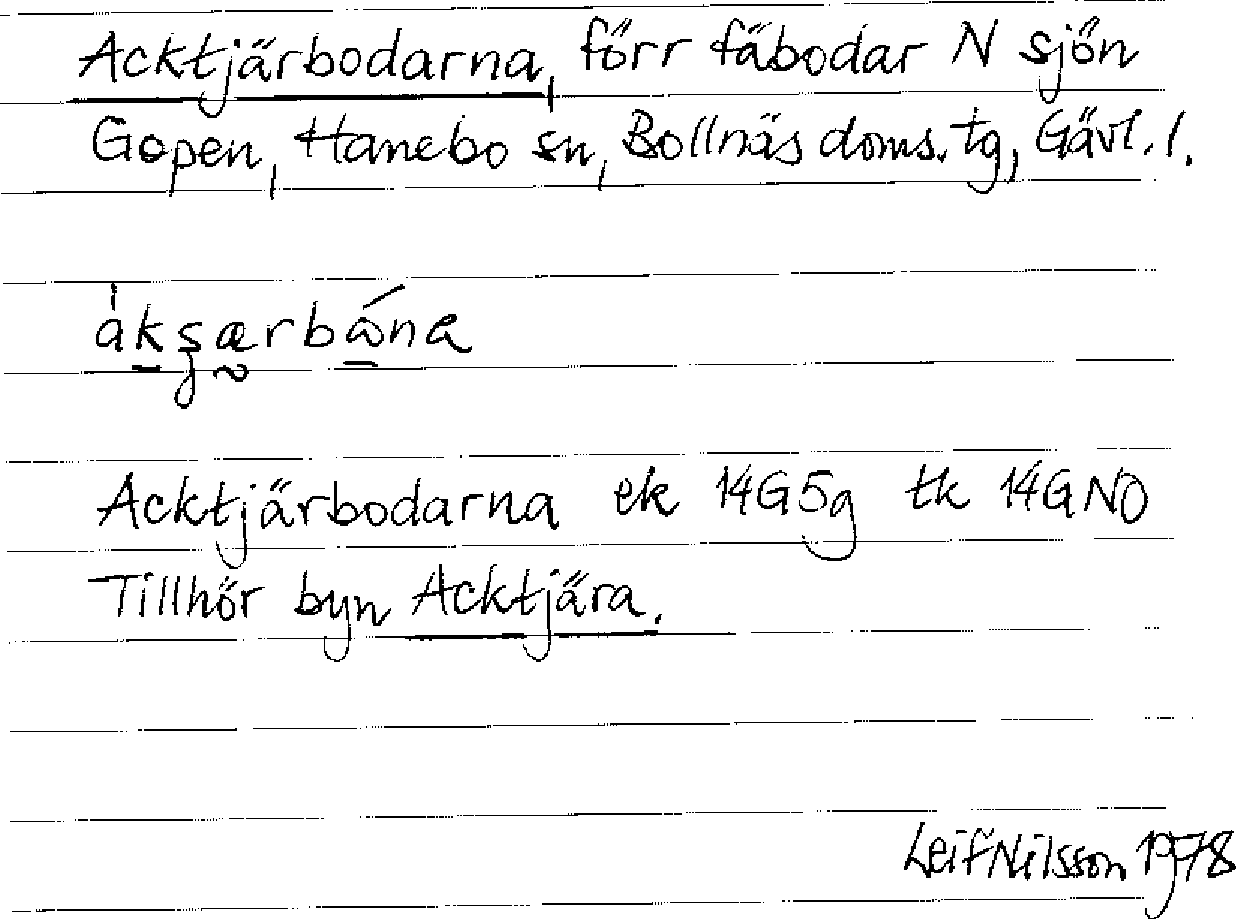 Acktjärbodarna, förr fäbodar N sjön
Gopen, Hanebo sn, Bollnäs doms. tg, Gävl. l.
Acktjärbodarna ek 14G5g tk 14GNO
Tillhör byn Acktjära.
Leif Nilsson 1978